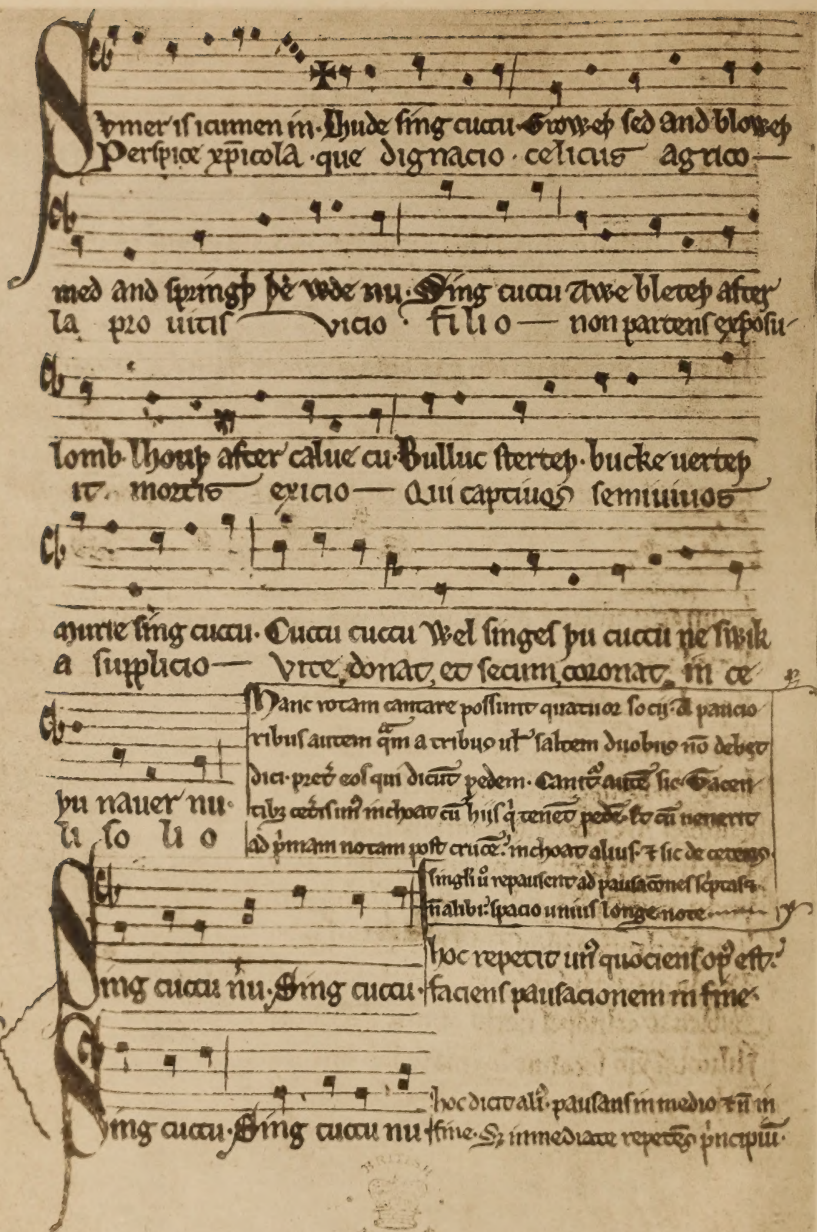 Svmer is icumen in· Lhude sing cuccu· Groweþ sed and bloweþ
Perspice xp̄icola · que dignacio · celicus agrico
med and springþ þe wde nu· Sing cuccu Awe bleteþ after
la pro uitis vicio · filio non parcens exposu
lomb· lhouþ after calue cu· Bulluc sterteþ· bucke uerteþ
it mortis exicio Qui captiuos semiuiuos
murie sing cuccu· Cuccu cuccu Wel singes þu cuccu ne swik
a supplicio Vite donat et secum coronat in ce
þu nauer nu·
li so li o
Hanc rotam cantare possunt quatuor socij· A paucio
ribus autem qͣm a tribus ul̄ saltem duobus nō debet
dici· pret̾ eos qui dicūt pedem· Canit᷒ autē sic· Tacen
tibȝ cet̾is un᷒ inchoat cū hijs q̇ tenēt pedē· Et cū uenerit
ad p̓mam notam post crucē· inchoat alius· ⁊ sic de ceteris·
singli ū repausent ad pausacōnes sc̓ptas ⁊
n̄ alibi· spacio unius longe note
Sing cuccu nu· Sing cuccu·
hoc repetit un᷒ quociens op᷒ est·
faciens pausacionem in fine·
Sing cuccu· Sing cuccu nu
hoc dicit ali᷒· pausans in medio ⁊ n̄ in
fine· Sȝ immediate repetēs p̓ncipiū·
BRITISH